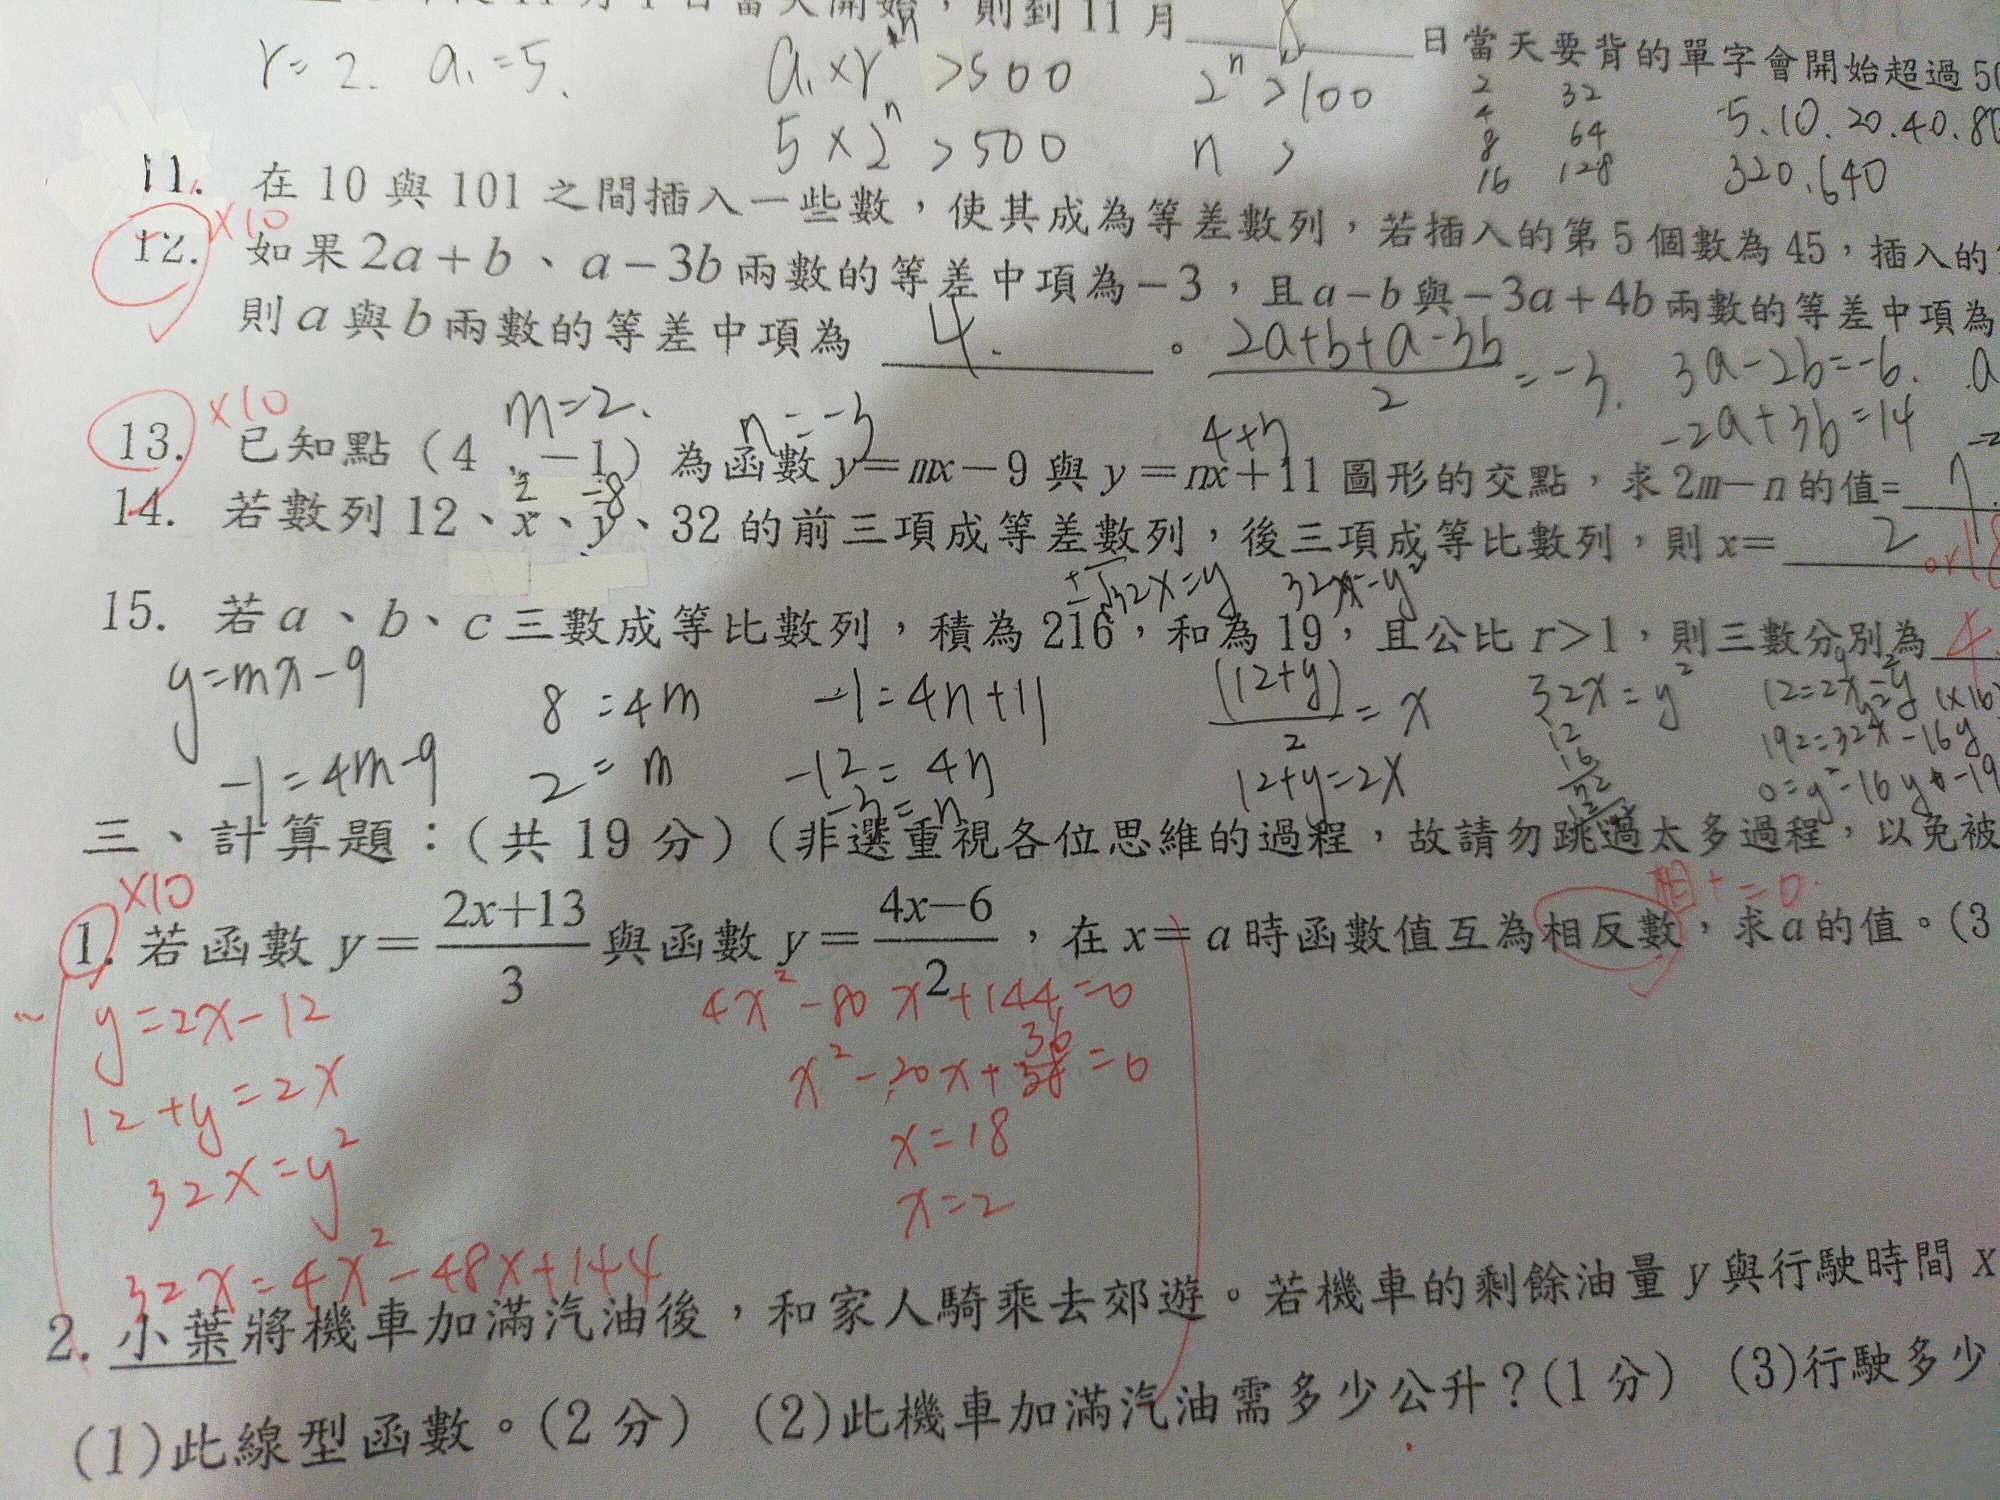 日當天開始，則到11月 8 日當天要背的單字會開始超過50
r=2. a₁=5.
a₁×r^n >500
5×2^n >500
2^n >100
n >
2 32
4 64
8 128
16
5.10.20.40.80
320.640
11. 在10與101之間插入一些數，使其成為等差數列，若插入的第5個數為45，插入的
×10
12. 如果2a+b、a-3b兩數的等差中項為-3，且a-b與-3a+4b兩數的等差中項為
則a與b兩數的等差中項為 4. 。
(2a+b+a-3b)/2 = -3. 3a-2b=-6.
-2a+3b=14
×10
m=2. n=-3
13. 已知點（4，-1）為函數y=mx-9與y=nx+11圖形的交點，求2m-n的值= 7.
4+3
2 -8
14. 若數列12、x、y、32的前三項成等差數列，後三項成等比數列，則x= 2 or18
±√32x=y 32x=y²
15. 若a、b、c三數成等比數列，積為216，和為19，且公比r>1，則三數分別為 4.
y=mx-9
-1=4m-9
8=4m
2=m
-1=4n+11
-12=4n
-3=n
(12+y)/2=x
12+y=2x
32x=y²
12
16
12=2x-y (×16)
192=32x-16y
0=y²-16y-19
三、計算題：(共19分)(非選重視各位思維的過程，故請勿跳過太多過程，以免被
×10
相+=0.
1. 若函數 y=(2x+13)/3 與函數 y=(4x-6)/2，在x=a時函數值互為相反數，求a的值。(3
y=2x-12
12+y=2x
32x=y²
32x=4x²-48x+144
4x²-80x+144=0
x²-20x+36=0
x=18
x=2
2. 小葉將機車加滿汽油後，和家人騎乘去郊遊。若機車的剩餘油量y與行駛時間x
(1)此線型函數。(2分) (2)此機車加滿汽油需多少公升？(1分) (3)行駛多少